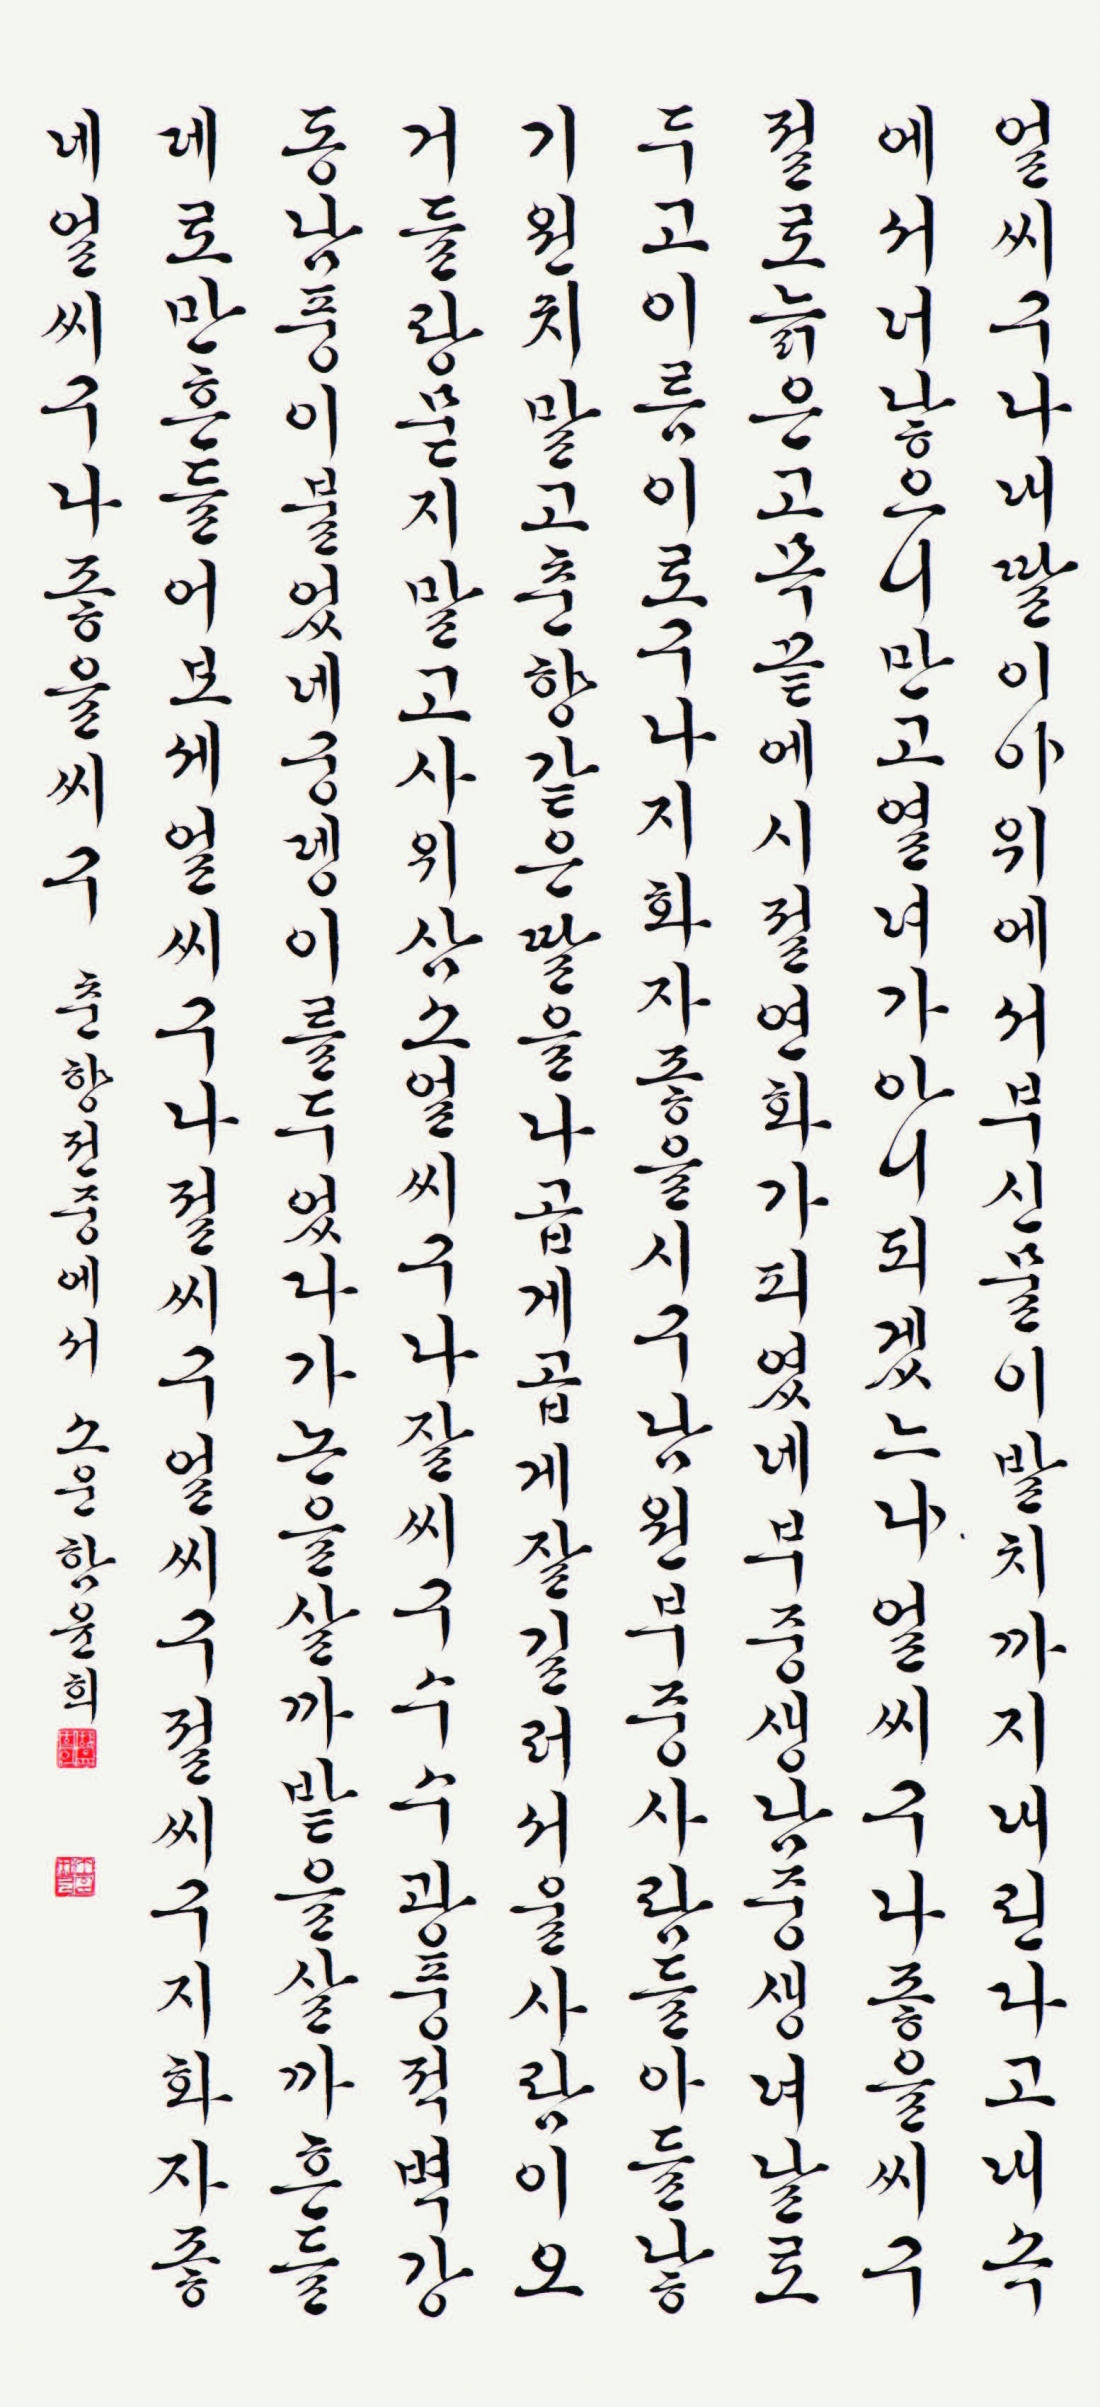 얼씨구나내딸이야위에서부신물이발치까지내린다고내속
에서너낳으니만고열녀가아니되겠느냐얼씨구나좋을씨구
절로늙은고목끝에시절연화가피였네부중생남중생녀날로
두고이름이로구나지화자좋을시구남원부중사람들아들낳
기원치말고춘향같은딸을나곱게곱게잘길러서울사람이오
거들랑묻지말고사위삼소얼씨구나잘씨구수수광풍적벽강
동남풍이불었네궁뎅이를두었다가논을살까밭을살까흔들
데로만흔들어보세얼씨구나절씨구얼씨구절씨구지화자좋
네얼씨구나좋을씨구 춘향전중에서 소운함윤희